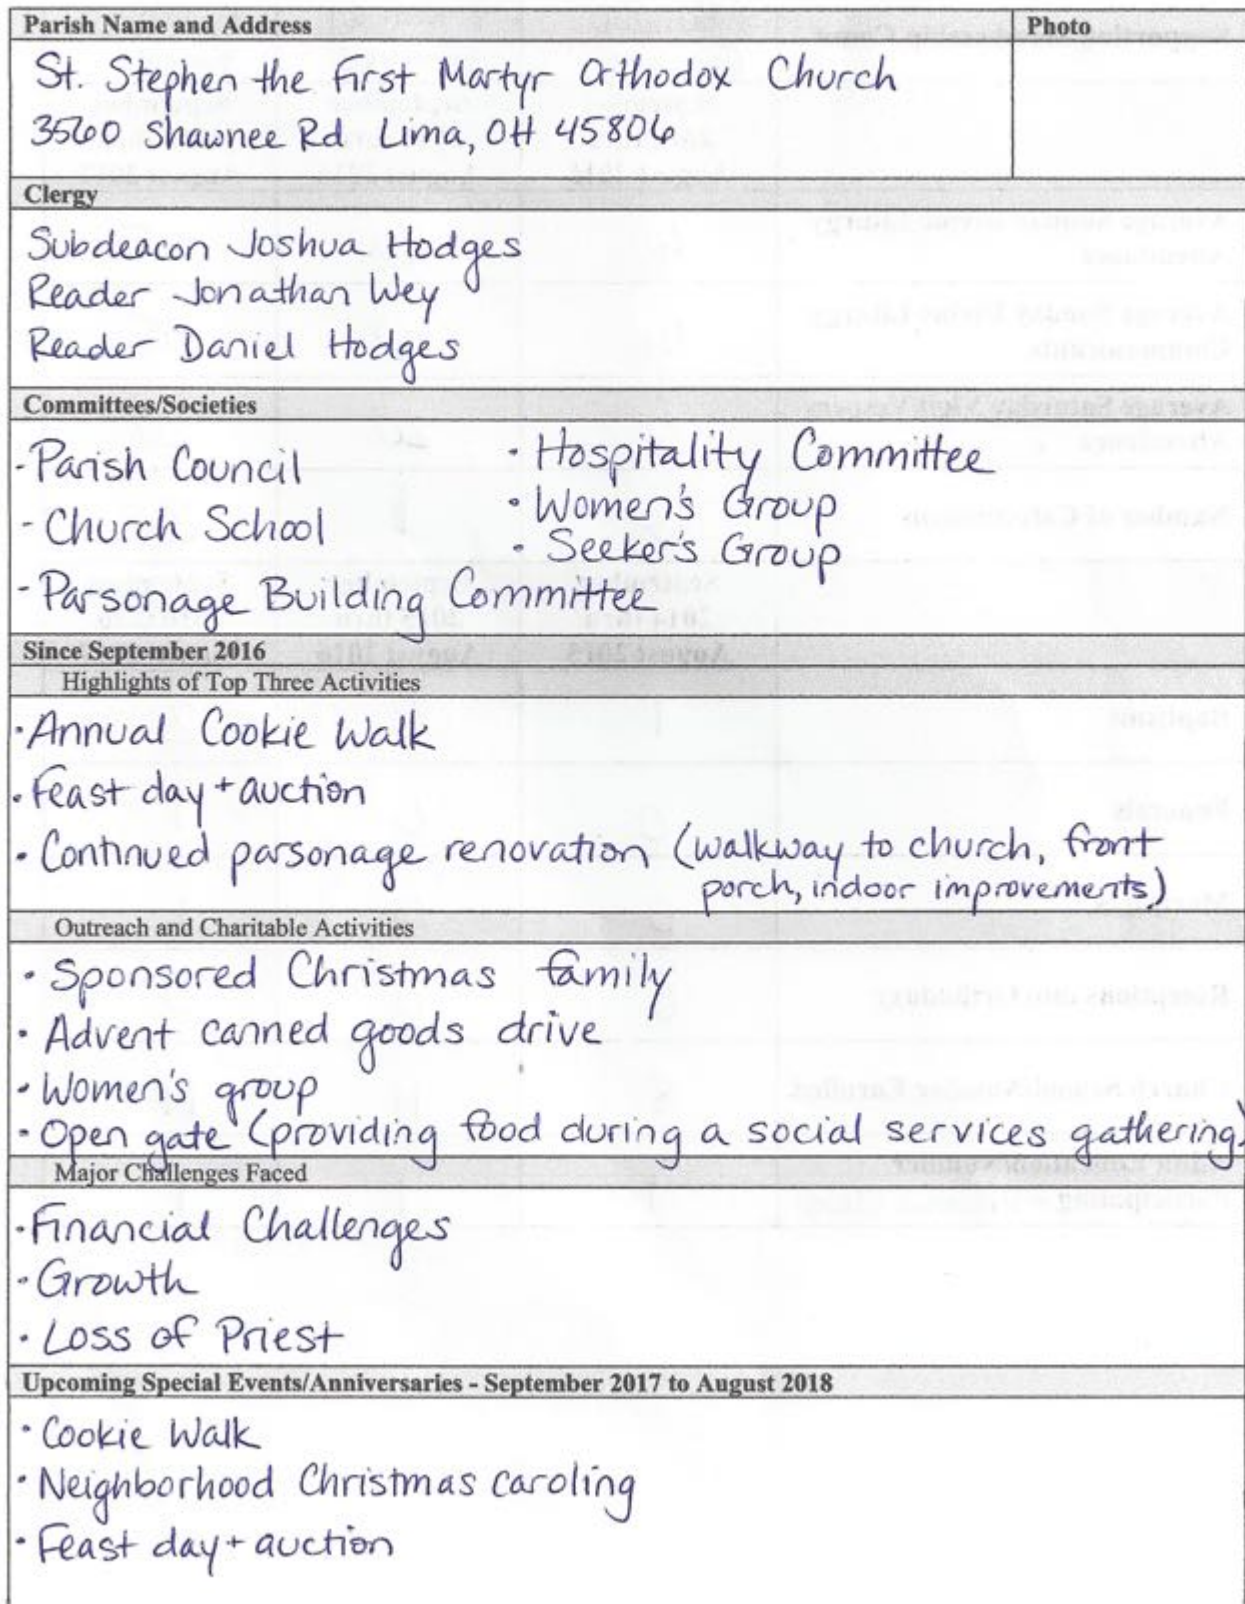 Parish Name and Address
Photo
St. Stephen the First Martyr Orthodox Church
3560 Shawnee Rd Lima, OH 45806
Clergy
Subdeacon Joshua Hodges
Reader Jonathan Wey
Reader Daniel Hodges
Committees/Societies
- Parish Council
- Church School
- Parsonage Building Committee
· Hospitality Committee
· Women's Group
· Seeker's Group
Since September 2016
Highlights of Top Three Activities
· Annual Cookie Walk
· Feast day + auction
· Continued parsonage renovation (walkway to church, front
porch, indoor improvements)
Outreach and Charitable Activities
· Sponsored Christmas family
· Advent canned goods drive
· Women's group
· Open gate (providing food during a social services gathering)
Major Challenges Faced
· Financial Challenges
· Growth
· Loss of Priest
Upcoming Special Events/Anniversaries - September 2017 to August 2018
· Cookie Walk
· Neighborhood Christmas caroling
· Feast day + auction